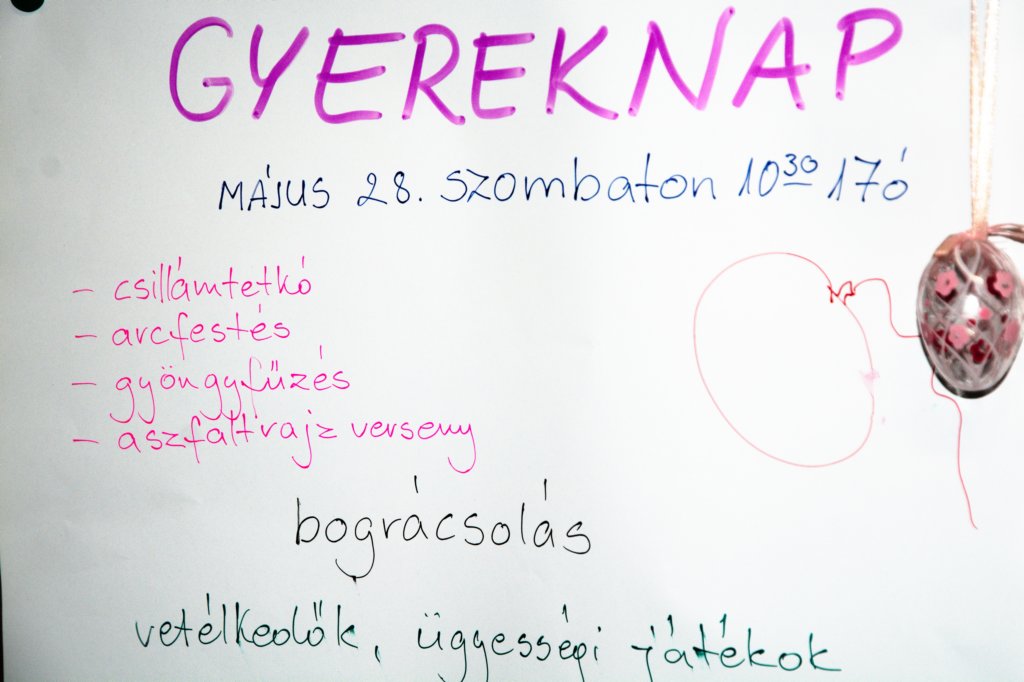 GYEREKNAP
MÁJUS 28. szombaton 10³⁰ 17ó
- csillámtetkó
- arcfestés
- gyöngyfűzés
- aszfaltrajz verseny
bográcsolás
vetélkedők, ügyességi játékok